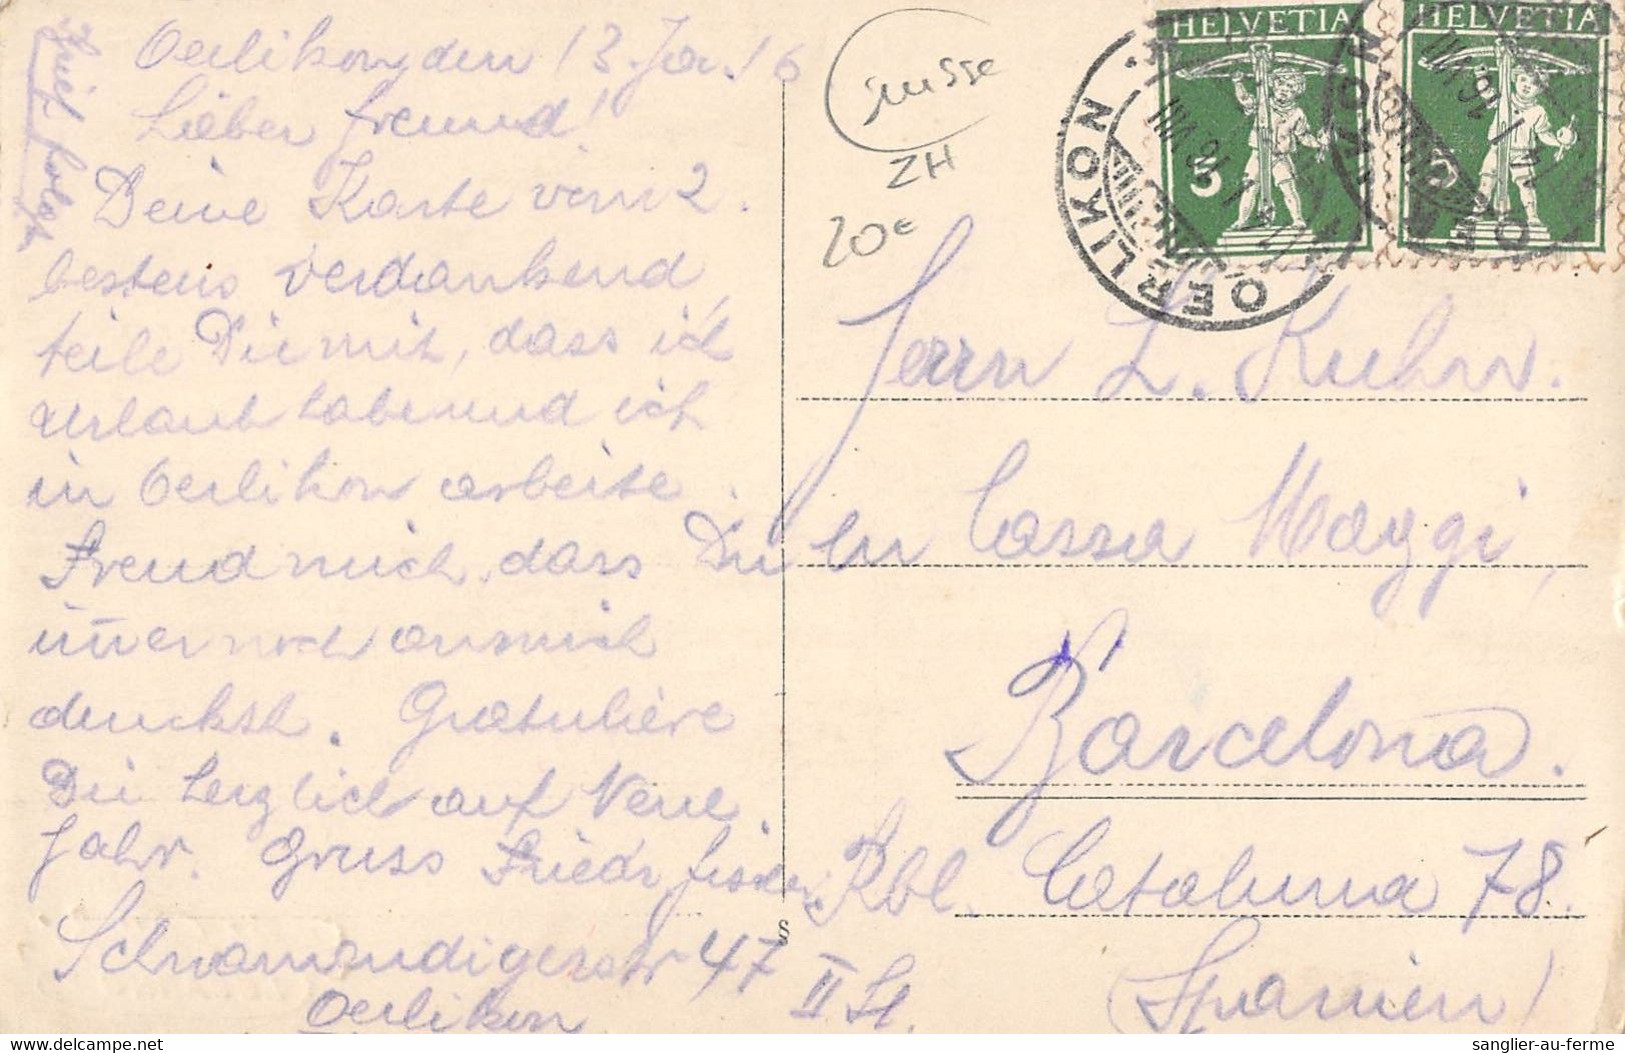 Oerlikon, den 13. Ja. 16
Lieber Freund!
Deine Karte vom 2.
bestens verdankend,
teile Dir mit, dass ich
Urlaub habe und ich
in Oerlikon arbeite.
Freud mich, dass Du
im̅er noch an mich
denckst. Gratuliere
Dir herzlich auf Neue
Jahr. Gruss Friedr
Schwamendigerstr 47 II St.
Oerlikon
Brief folgt
suisse
ZH
20€
HELVETIA
HELVETIA
5
OERLIKON
OERLIKON
Herrn L. Kuhn.
en Cassa Maggi,
Barcelona.
Rbl. Cataluna 78.
(Spanien)
S
Delcampe.net
sanglier-au-ferme